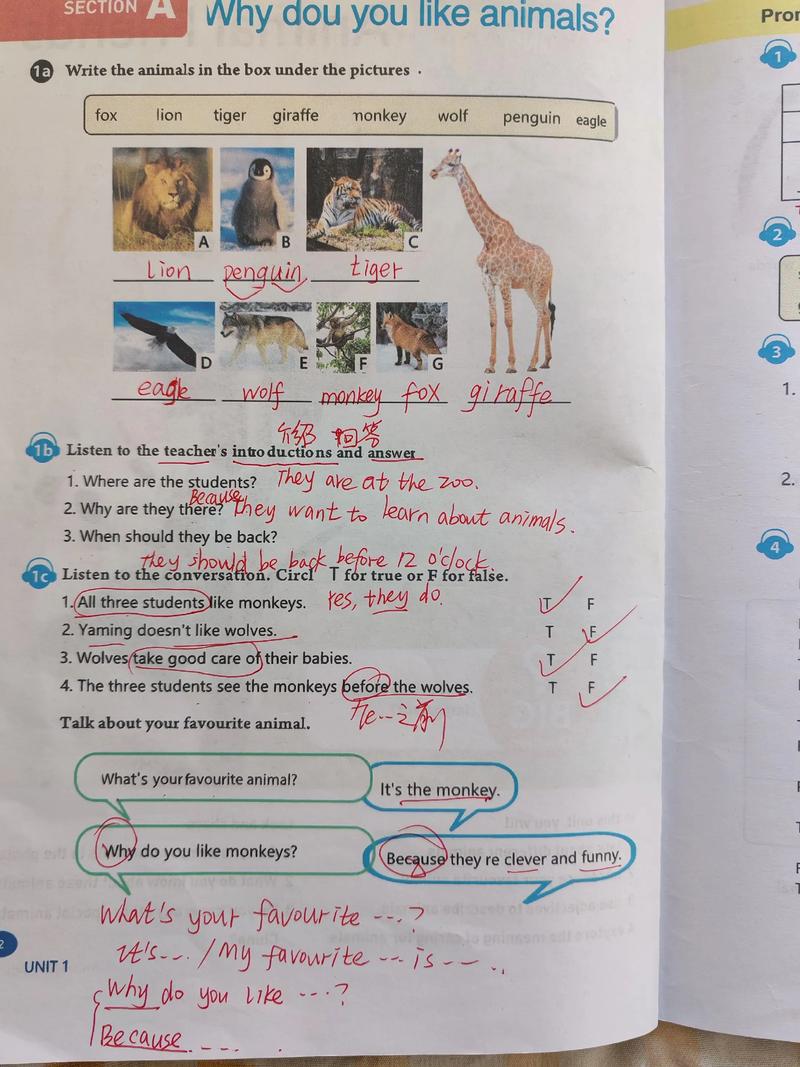 SECTION A Why dou you like animals?
1a Write the animals in the box under the pictures .
fox lion tiger giraffe monkey wolf penguin eagle
A B C
lion penguin tiger
D E F G
eagle wolf monkey fox giraffe
介绍 回答
1b Listen to the teacher's introductions and answer
1. Where are the students? They are at the zoo.
Because
2. Why are they there? they want to learn about animals.
3. When should they be back?
they should be back before 12 o'clock.
1c Listen to the conversation. Circl T for true or F for false.
1. All three students like monkeys. Yes, they do. T F
2. Yaming doesn't like wolves. T F
3. Wolves take good care of their babies. T F
4. The three students see the monkeys before the wolves. T F
在...之前
Talk about your favourite animal.
What's your favourite animal?
It's the monkey.
Why do you like monkeys?
Because they re clever and funny.
What's your favourite ---?
It's--. /My favourite -- is --.
Why do you like ---?
Because ---.
2
UNIT 1
Pror
1
2
3
1.
2.
4